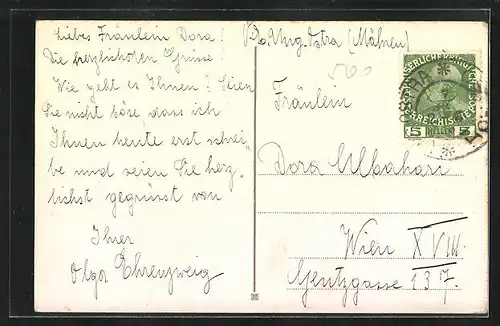 Liebes Fräulein Dora!
Die herzlichsten Grüsse!
Wie geht es Ihnen? Seien
Sie nicht böse dass ich
Ihnen heute erst schrei-
be und seien Sie herz-
lichst gegrüsst von
Ihrer
Olga Ehrenzweig
Ung. Ostra (Mähren)
Fräulein
Dora Albahari
Wien XVIII.
Gentzgasse 137.
5 HELLER 5